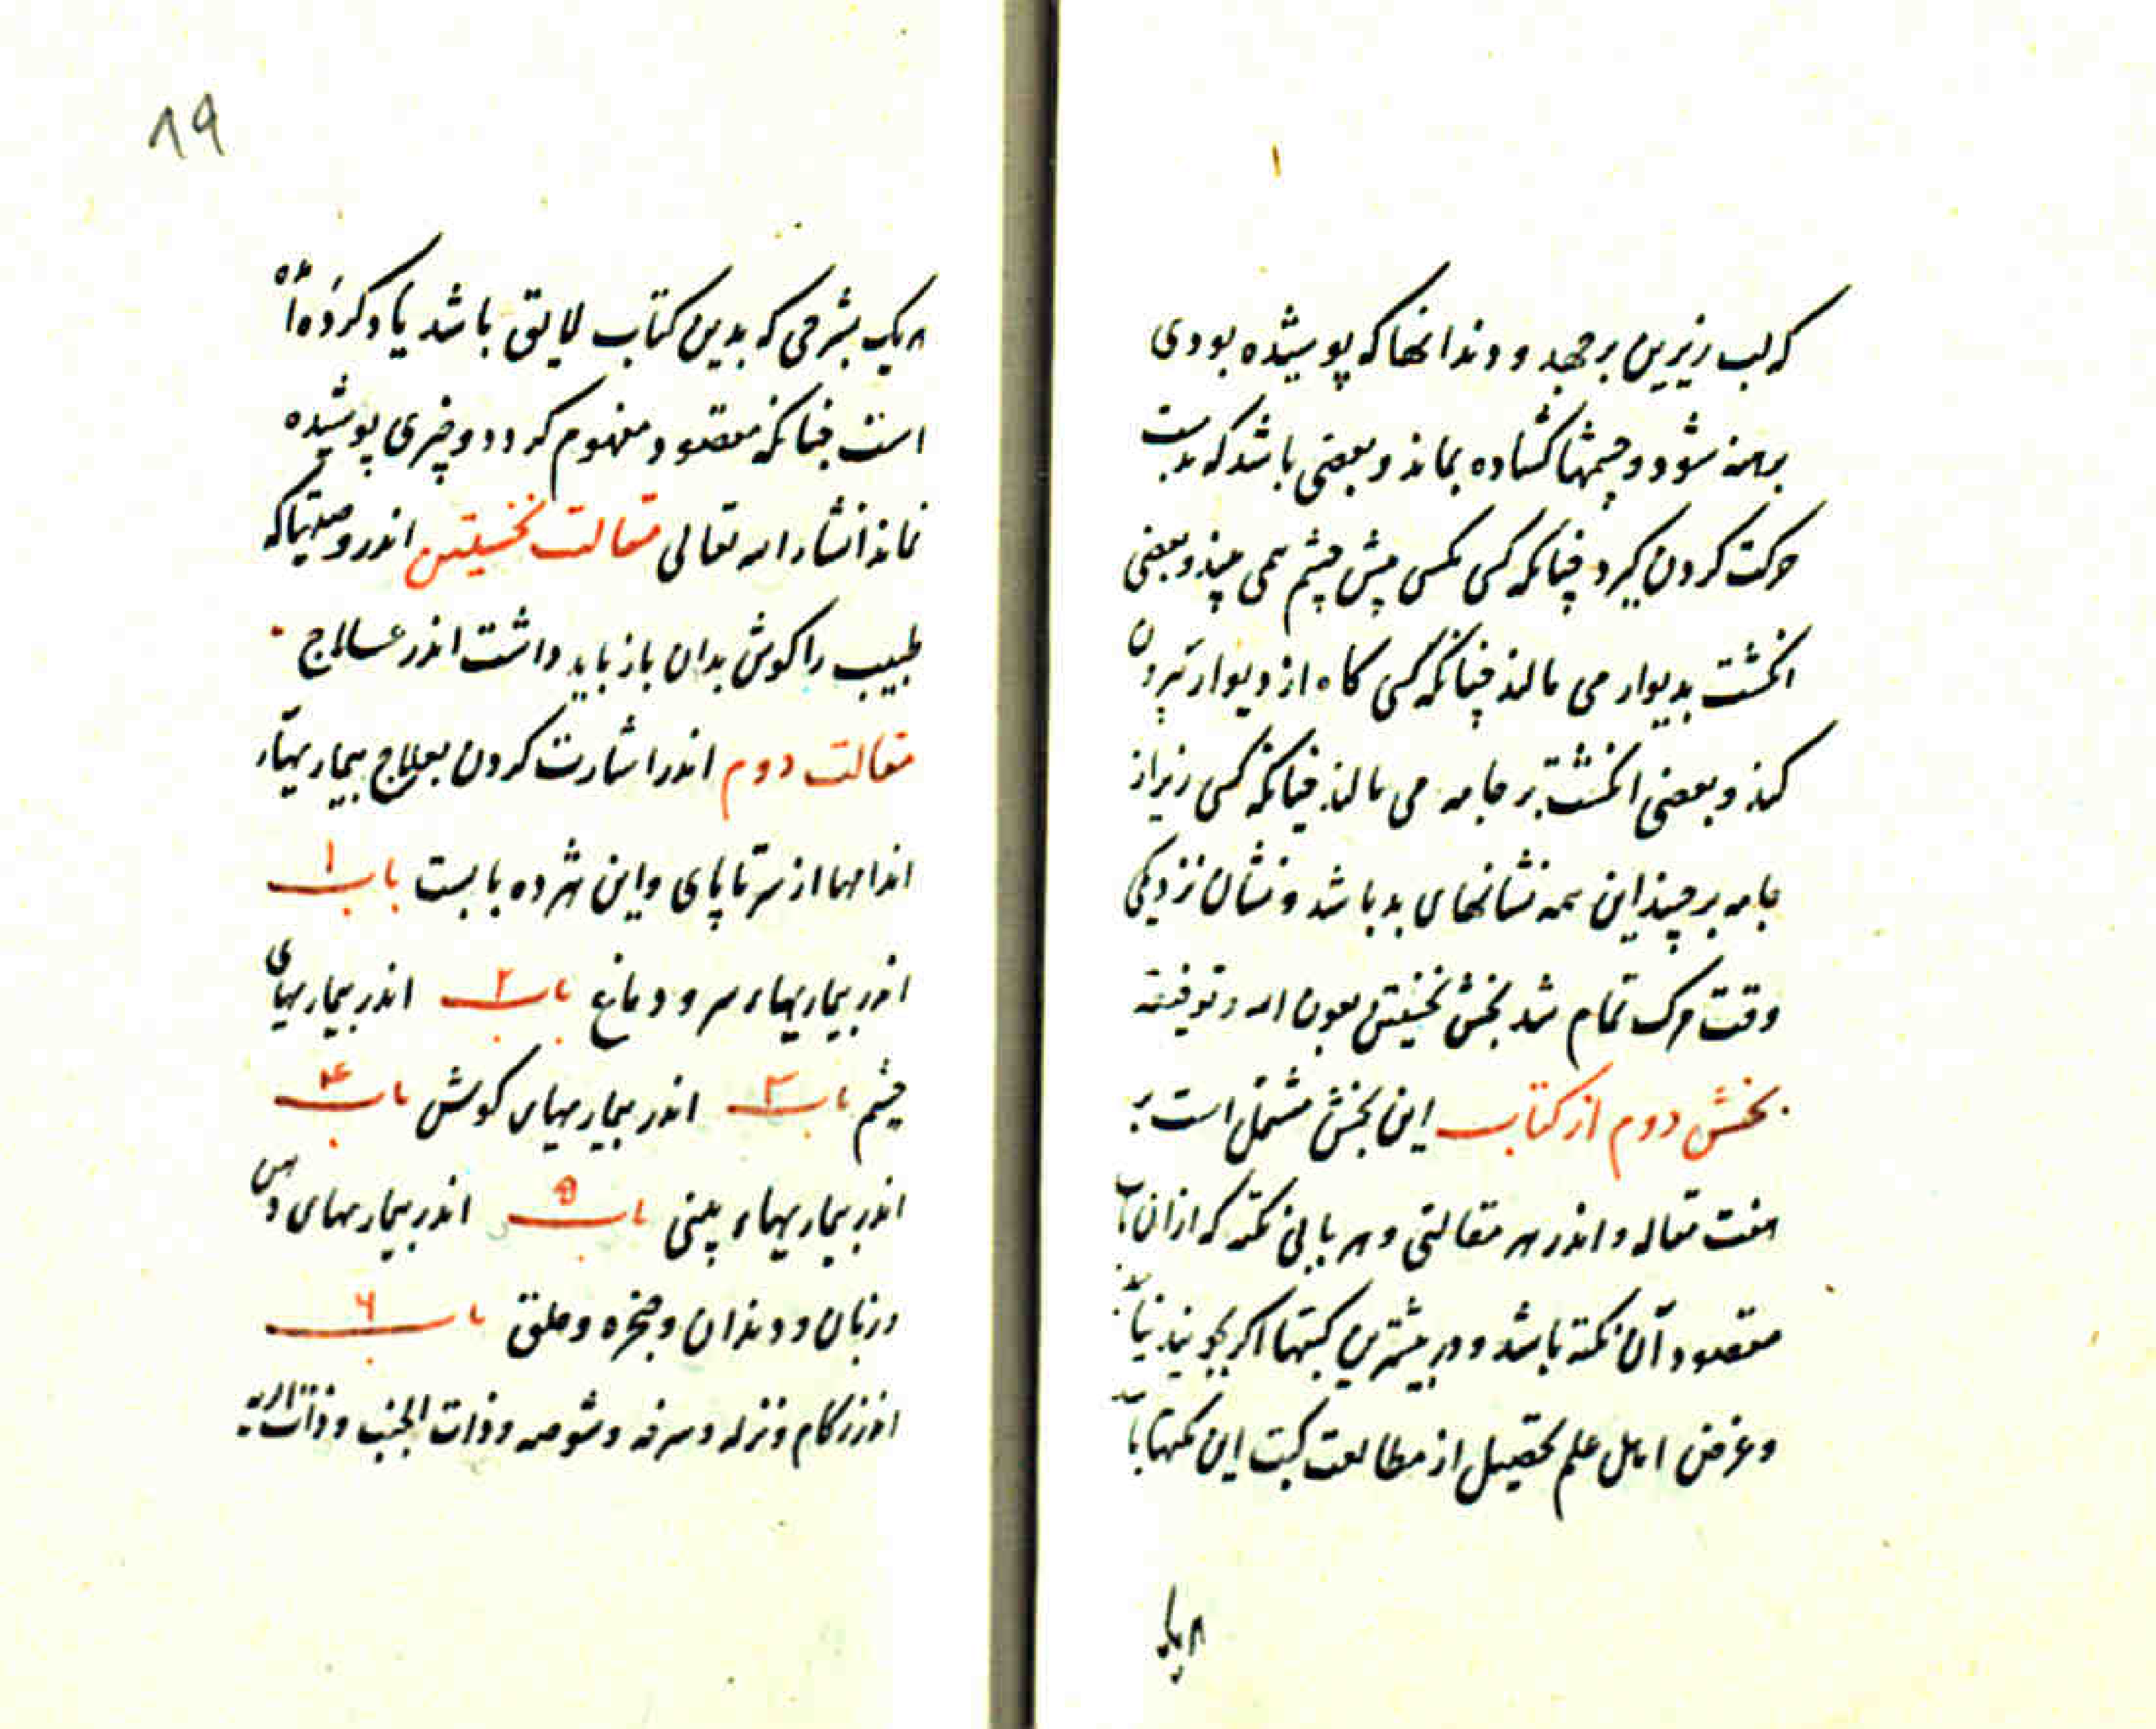 که لب زیرین برجهد و دندانها که پوشیده بودی
برهنه شود و چشمها کشاده بماند و بعضی باشد که بدست
حرکت کردن کیرد چنانکه کسی مکس پیش چشم همی بیند و بعضی
انکشت بدیوار می مالند چنانکه کسی کاه از دیوار بیرون
کند و بعضی انکشت بر جامه می مالند چنانکه کسی زیر از
جامه برچیند این همه نشانهای بد باشد و نشان نزدیکی
وقت مرک تمام شد بخش نخستین بعون الله و توفیقه
بخش دوم از کتاب این بخش مشتمل است بر
هفت مقاله و اندر هر مقالتی و هر بابی نکته که از ان باب
مقصود آن نکته باشد و در بیشترین کتبها اکر بجویند نیابند
و غرض اهل علم تحصیل از مطالعت کتب این نکتها با
هر یک
۸۹
هر یک بشرحی که بدین کتاب لایق باشد یاد کرده آمده
است چنانکه مقصود مفهوم کردد و چیزی پوشیده
نماند انشاء الله تعالی مقالت نخستین اندر وصیتها که
طبیب را کوش بدان باز باید داشت اندر علاج
مقالت دوم اندر اشارت کردن بعلاج بیماریهاء
اندامها از سر تا پای و این هژده بابست باب ۱
اندر بیماریهاء سر و دماغ باب ۲ اندر بیماریهای
چشم باب ۳ اندر بیماریهای کوش باب ۴
اندر بیماریهاء بینی باب ۵ اندر بیماریهای دهن
و زبان و دندان و حنجره و حلق باب ۶
اندر زکام و نزله و سرفه و شوصه و ذات الجنب و ذات الریه